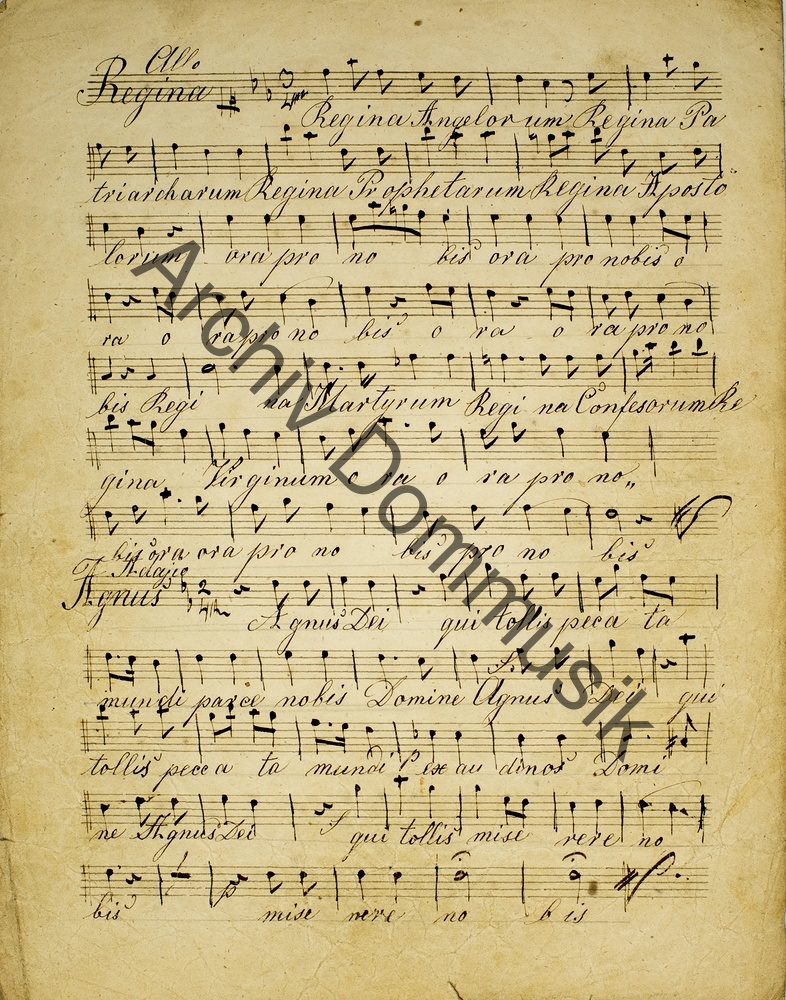 Allo
Regina
Regina Angelor um Regina Pa
triarcharum Regina Prophetarum Regina Aposto
lorum ora pro no bis ora pro nobis o
ra o ra pro no bis o ra o ra pro no
bis Regi na Martyrum Regi na Confesorum Re
gina Virginum o ra o ra pro no„
bis ora ora pro no bis pro no bis
Adagio
Agnus
Agnus Dei qui tollis peca ta
mundi parce nobis Domine Agnus Dei qui
tollis pecca ta mundi ex au dinos Domi
ne Agnus Dei qui tollis mise rere no
bis mise rere no bis
Archiv Dommusik